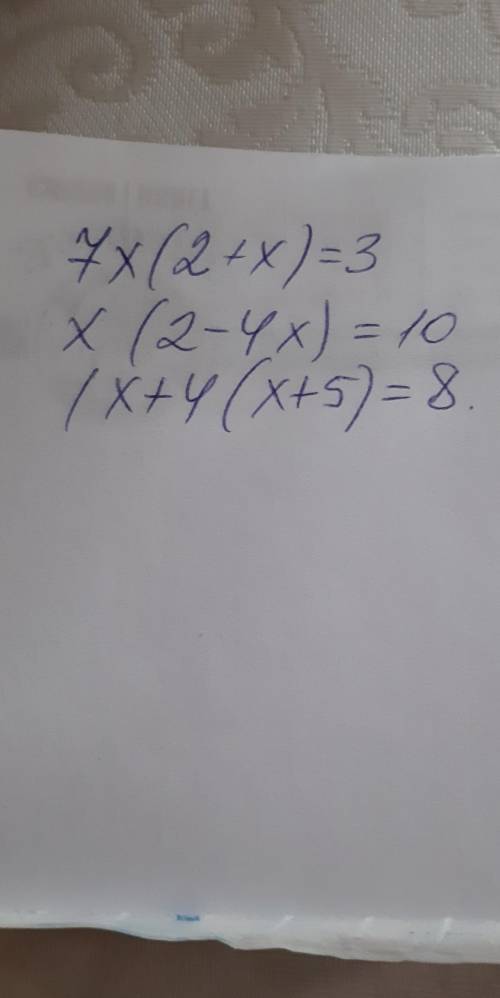 7x(2+x)=3
x(2-4x)=10
1x+4(x+5)=8.